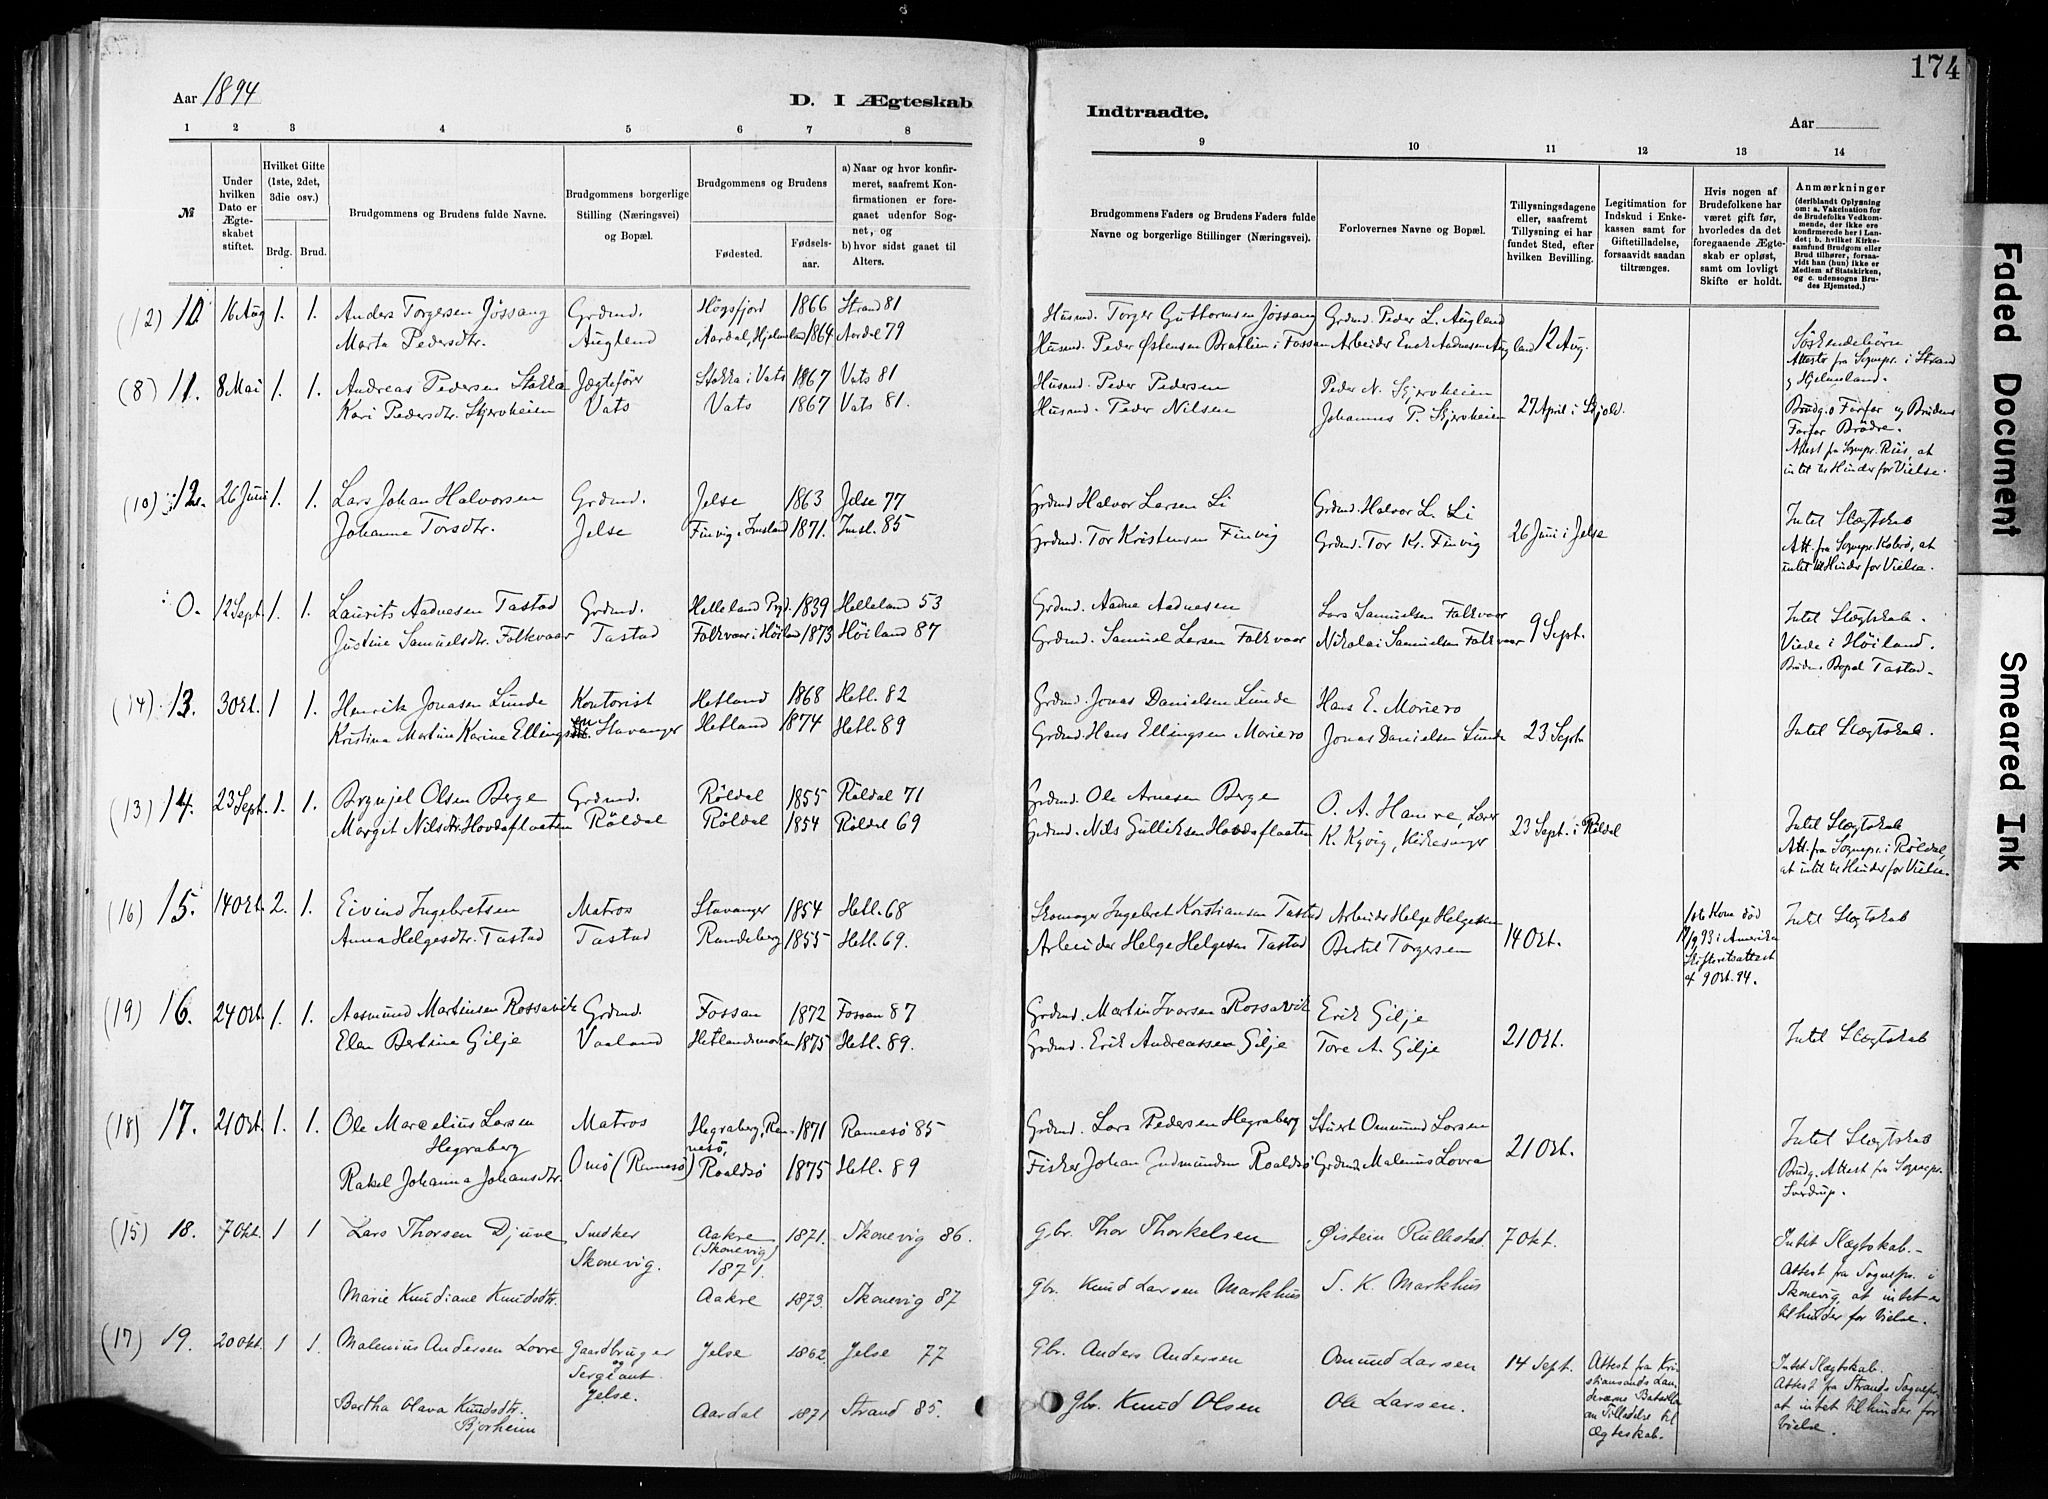 174
Aar 1894
D. I Ægteskab
Indtraadte.
Aar
1 2 3 4 5 6 7 8 9 10 11 12 13 14
№
Under hvilken Dato er Ægteskabet stiftet.
Hvilket Gifte (1ste, 2det, 3die osv.)
Brdg. Brud.
Brudgommens og Brudens fulde Navne.
Brudgommens borgerlige Stilling (Næringsvei) og Bopæl.
Brudgommens og Brudens
Fødested.
Fødselsaar.
a) Naar og hvor konfirmeret, saafremt Konfirmationen er foregaaet udenfor Sognet, og
b) hvor sidst gaaet til Alters.
Brudgommens Faders og Brudens Faders fulde Navne og borgerlige Stillinger (Næringsvei).
Forlovernes Navne og Bopæl.
Tillysningsdagene eller, saafremt Tillysning ei har fundet Sted, efter hvilken Bevilling.
Legitimation for Indskud i Enkekassen samt for Giftetilladelse, forsaavidt saadan tiltrænges.
Hvis nogen af Brudefolkene har været gift før, hvorledes da det foregaaende Ægteskab er opløst, samt om lovligt Skifte er holdt.
Anmærkninger
(deriblandt Oplysning om: a. Vakcination for de Brudefolks Vedkommende, der ikke ere konfirmerede her i Landet; b. hvilket Kirkesamfund Brudgom eller Brud tilhører, forsaavidt han (hun) ikke er Medlem af Statskirken, og c. udensogns Brudes Hjemsted.)
(12) 10. 16 Aug 1. 1. Anders Torgersen Jössang Grdmd. Högsfjord 1866 Strand 81 Husmd. Torger Guttormsen Jössang Grdmd. Peder L. Auglend
Marta Pedersdtr. Auglend Aardal, Hjelmeland 1864 Aardal 79 Husmd. Peder Østensen Bratlien i Fossan Arbeider Enok Aadnesen Augland 12 Aug.
Söskendebörn
Attester fra Sognepr. i Strand
og Hjelmeland.
(8) 11. 8 Mai 1. 1. Andreas Pedersen Stakka Jægtefører Stakka i Vats 1867 Vats 81 Husmd. Peder Pedersen Peder N. Skjerveheien
Kari Pedersdtr. Skjerveheien Vats Vats 1867 Vats 81. Husmd. Peder Nilsen Johannes P. Skjerveheien 27 April i Skjold.
Brudg.s Farfar og Brudens
Farfar Brödre.
Attest fra Sognepr. Riis, at
intet til Hinder for Vielse.
(10) 12. 26 Juni 1. 1. Lars Johan Halvorsen Grdmd. Jelse 1863 Jelse 77 Grdmd Halvor Larsen Li Grdmd. Halvor L. Li
Johanne Torsdtr. Jelse Finvig i Imsland 1871. Imsl. 85 Grdmd. Tor Kristensen Finvig Grdmd. Tor Kr. Finvig 26 Juni i Jelse
Intet Slægtskab
Att. fra Sognepr. Kobrö, at
intet til Hinder for Vielse.
0. 12 Sept. 1. 1. Laurits Aadnesen Tastad Grdmd. Helleland Prgd. 1839 Helleland 53 Grdmd. Aadne Aadnesen Lars Samuelsen Folkvoar
Justine Samuelsdtr. Folkvoar Tastad Folkvoar i Höiland 1873 Höiland 87 Grdmd. Samuel Larsen Folkvoar Nikolai Samuelsen Folkvoar 9 Sept.
Intet Slægtskab.
Viede i Höiland.
Brudens Bopæl Tastad.
(14) 13. 3 Okt. 1 1. Henrik Jonasen Lunde Kontorist Hetland 1868 Hetl. 82 Grdmd. Jonas Danielsen Lunde Hans E. Moriero
Kristina Martine Karine Ellingsen Stavanger Hetland 1874 Hetl. 89 Grdmd. Hans Ellingsen Moriero Jonas Danielsen Lunde 23 Sept. Intet Slægtskab.
(13) 14. 23 Sept. 1. 1. Brynjel Olsen Berge Grdmd. Röldal 1855 Röldal 71 Grdmd. Ole Arnesen Berge O. A. Hamre, Lærer
Marget Nilsdtr. Hovdaflaaten Röldal Röldal 1854 Röldal 69 Grdmd. Nils Gulliksen Hovdaflaaten K. Kyvig, Kirkesanger 23 Sept. i Röldal
Intet Slægtskab
Att. fra Sognepr. i Röldal,
at intet til Hinder for Vielse.
(16) 15. 14 Okt. 2. 1. Eivind Ingebretsen Matros Stavanger 1854 Hetl. 68 Skomager Ingebret Kristiansen Tastad Arbeider Helge Helgesen
Anna Helgesdtr. Tastad Tastad Randeberg 1855 Hetl. 69. Arbeider Helge Helgesen Tastad Bertil Torgersen 14 Okt.
1ste Kone död
17/9 93 i Amerika
Skifteretsattest
af 9 Okt. 94.
Intet Slægtskab
(19) 16. 24 Okt. 1. 1. Aasmund Martinsen Rossavik Grdmd. Fossan 1872 Fossan 87 Grdmd. Martin Ivarsen Rossavik Erik Gilje
Elen Bertine Gilje Vaaland Hetlandsmarken 1875 Hetl. 89. Grdmd. Erik Andreassen Gilje Tore A. Gilje 21 Okt. Intet Slægtskab
(18) 17. 21 Okt. 1. 1. Ole Marcelius Larsen Matros Hegraberg, Rennesö, 1871 Rennesö 85 Grdmd. Lars Pedersen Hegraberg Stuert Ommund Larsen
Hegraberg
Rakel Johanna Johansdtr. Omö (Rennesö) Roaldsö 1875 Hetl. 89 Fisker Johan Gudmundsen Roaldsö Grdmd. Malenius Lovra 21 Okt.
Intet Slægtskab
Brudg. Attest fra Sognepr.
Sverdrup.
(15) 18. 7 Okt. 1 1 Lars Thorsen Djuve Snedker Aakre 1871. Skonevig 86. Gbr. Thor Thorkelsen Øistein Rullestad. 7 Okt.
Skonevig. (Skonevig) 1871.
Marie Knudiane Knudsdtr. Aakre 1873. Skonevig 87 Gbr. Knud Larsen Markhus S. K. Markhus
Intet Slægtskab.
Attest fra Sognepr. i
Skonevig, at intet er
til hinder for Vielse.
(17) 19. 20 Okt. 1 1. Malenius Andersen Lovre Gaardbruger Jelse 1862. Jelse 77 Gbr. Anders Andersen Omund Larsen 14 Sept.
og Sergeant Jelse.
Bertha Olava Knudsdtr. Aardal 1871 Strand 85. Gbr. Knud Olsen Ole Larsen.
Bjorheim
Attest fra Kristiansands Landeværns Bataillon Tilladelse til Ægteskab.
Intet Slægtskab.
Attest fra Strands Sognepr.
at intet til hinder for
Vielse.
Faded Document
Smeared Ink